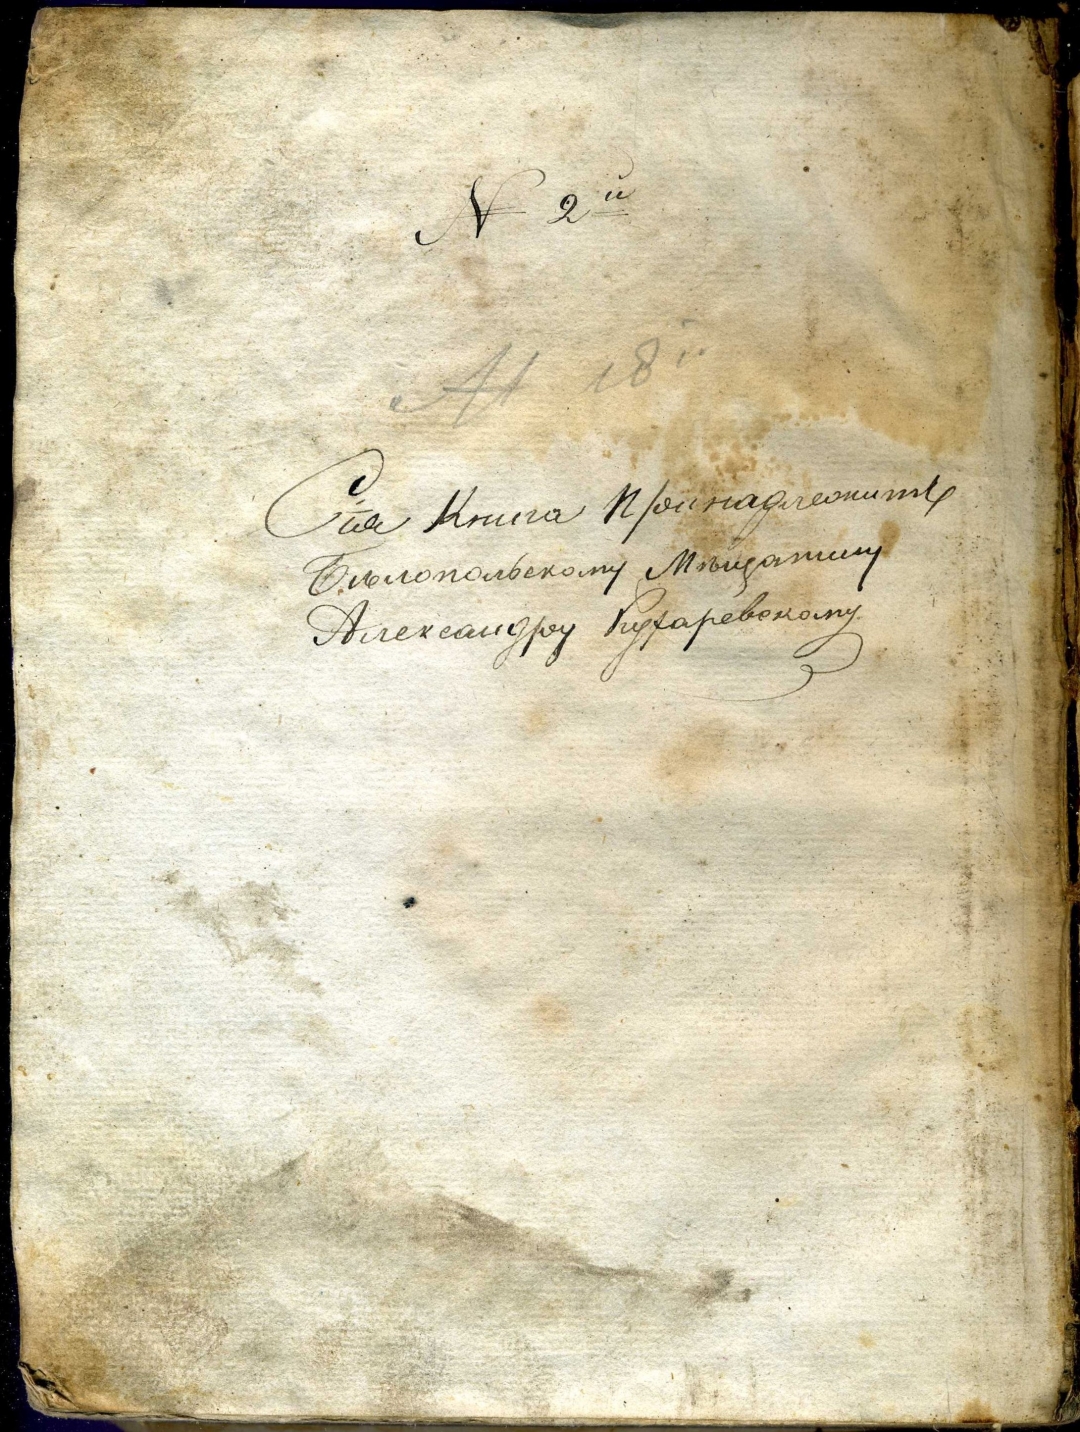 N 2й
№ 18й
Сія Книга Принадлежитъ
Бѣлопольскому Мѣщанину
Александру